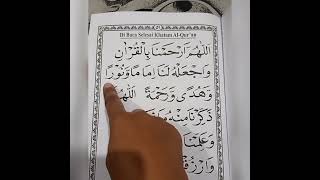 Di Baca Selesai Khatam Al-Qur'an
اَللّٰهُمَّ ارْحَمْنَا بِالْقُرْاٰنِ
وَاجْعَلْهُ لَنَا اِمَامًا وَنُوْرًا
وَهُدًى وَرَحْمَةً اَللّٰهُمَّ
ذَكِّرْنَا مِنْهُ مَا
وَعَلِّمْنَا
وَارْزُقْنَا